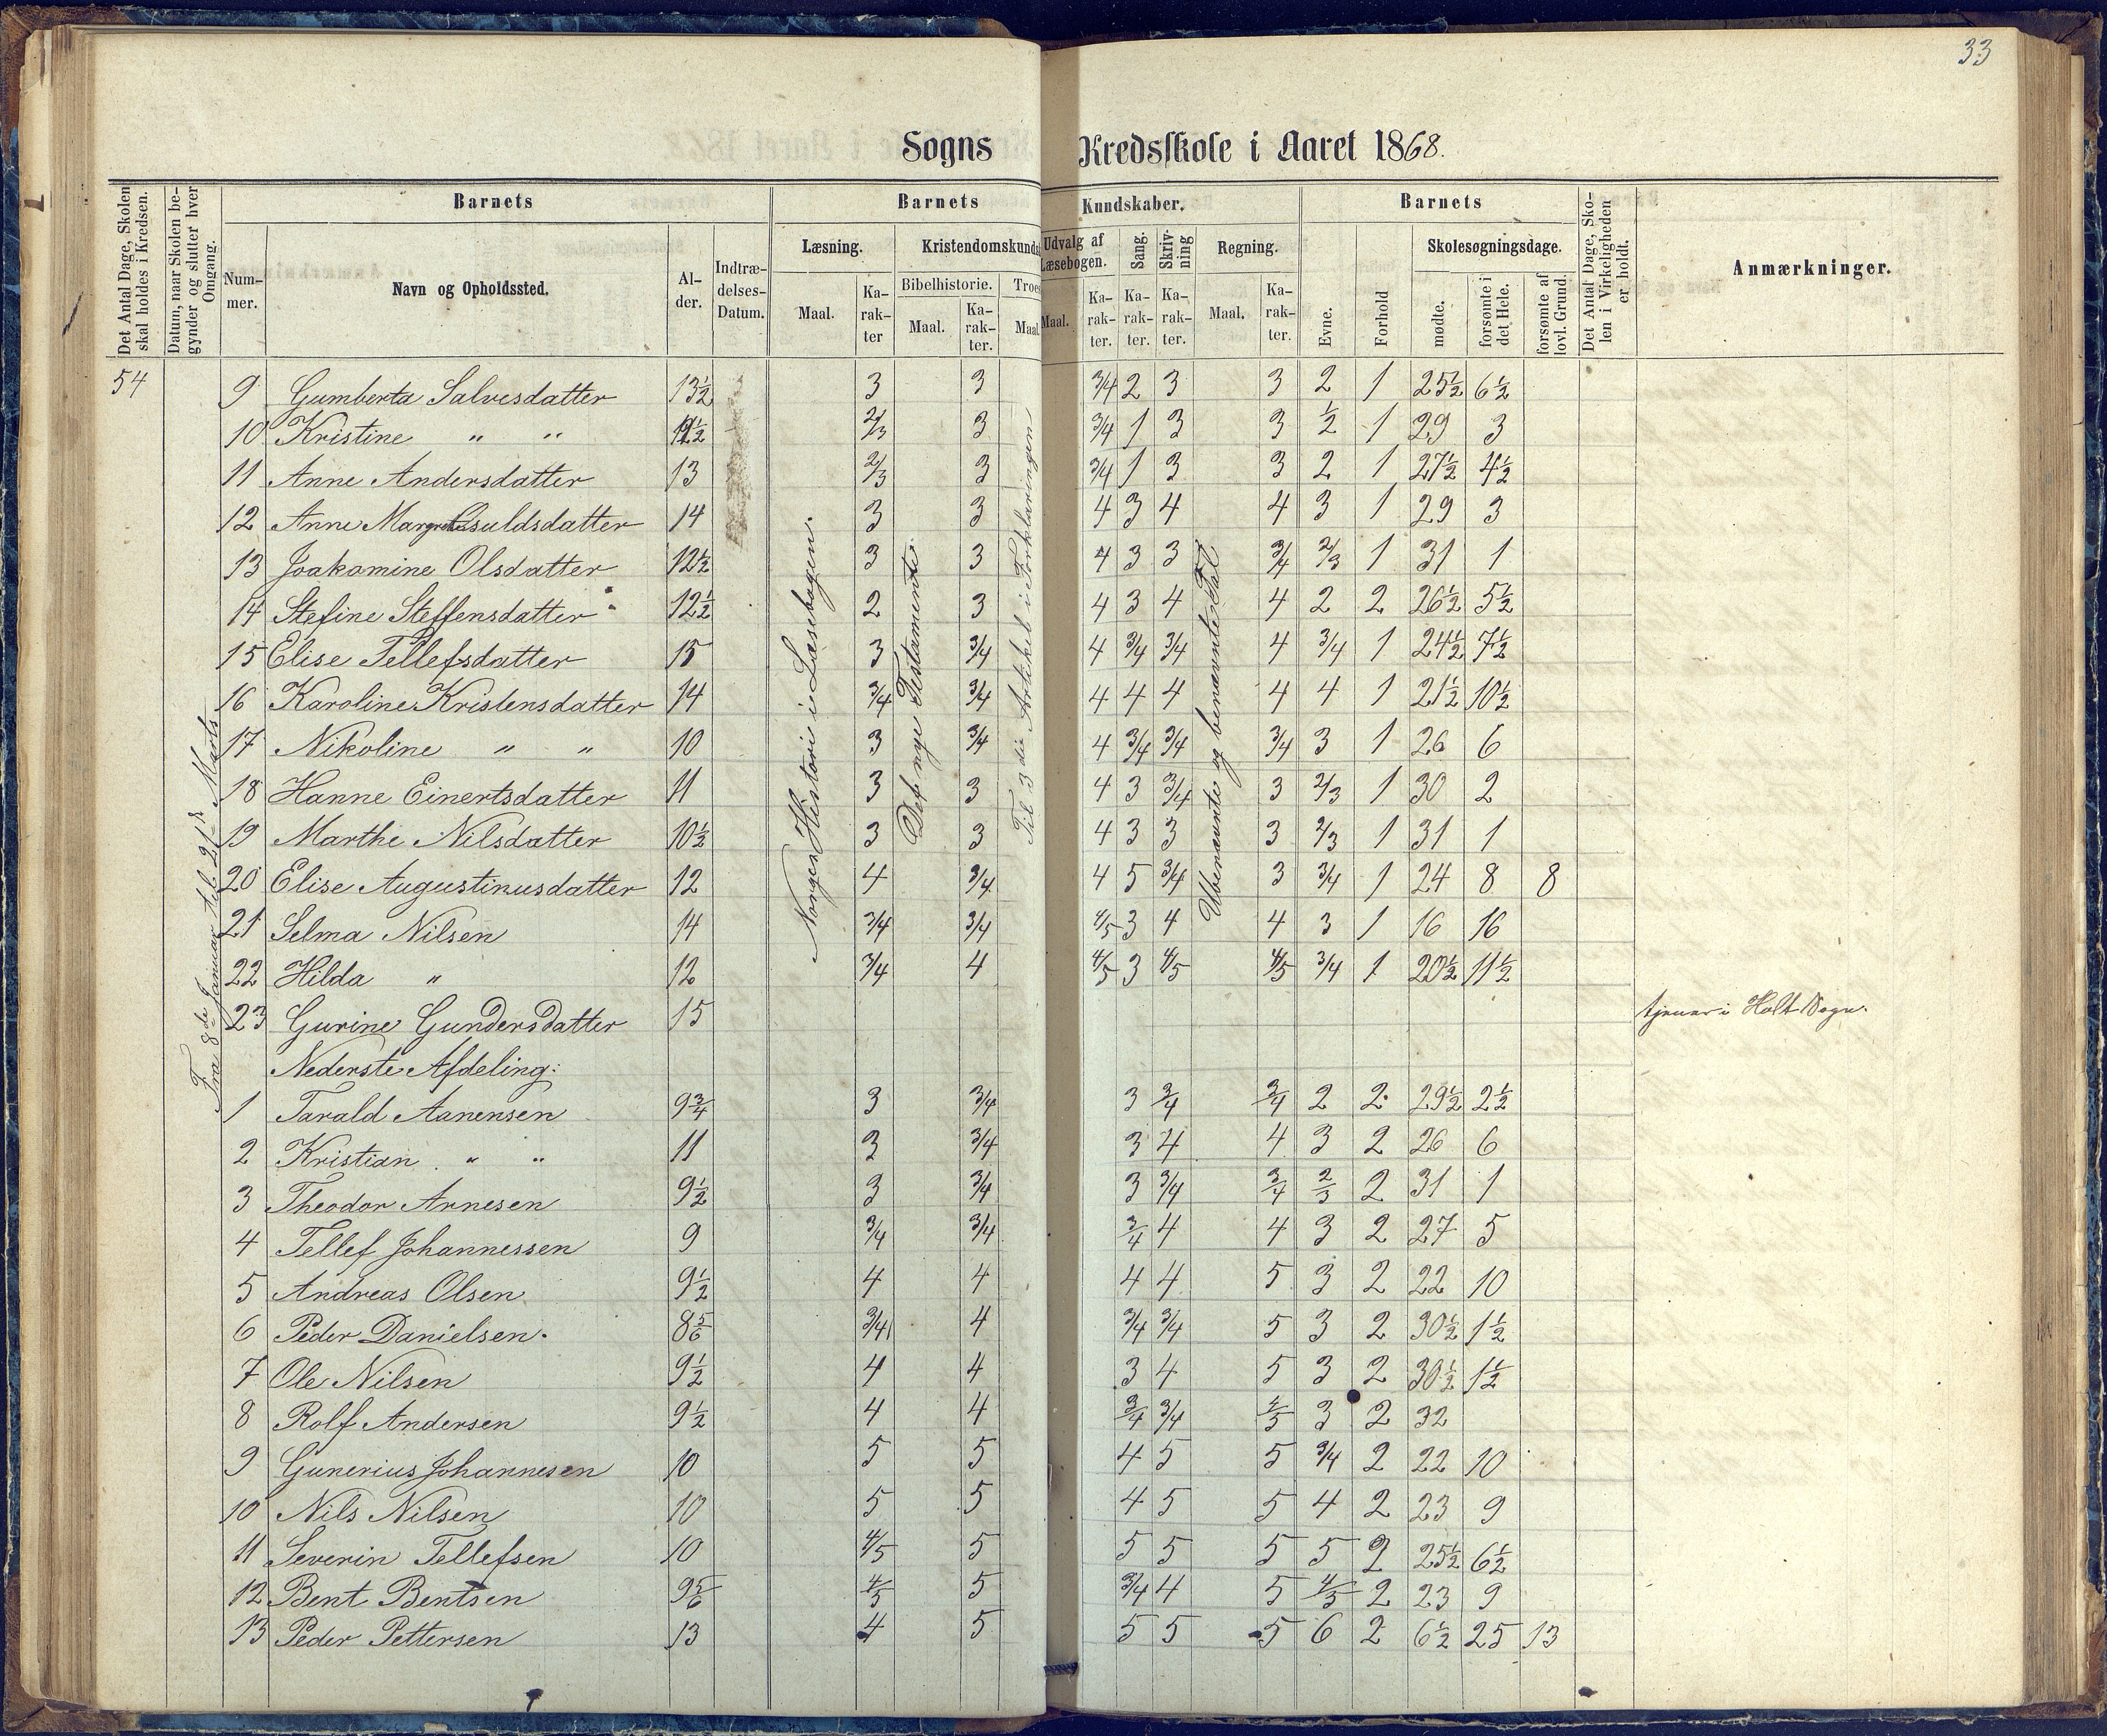 33
Sogns Kredsskole i Aaret 1868.
Det Antal Dage, Skolen skal holdes i Kredsen.
Datum, naar Skolen begynder og slutter hver Omgang.
Barnets
Num-mer.
Navn og Opholdssted.
Al-der.
Indtræ-delses-Datum.
Barnets Kundskaber.
Læsning.
Maal.
Ka-rak-ter
Kristendomskunds
Bibelhistorie.
Maal.
Ka-rak-ter.
Troes
Maal.
Udvalg af Læsebogen.
Maal.
Ka-rak-ter.
Sang.
Ka-rak-ter.
Skriv-ning
Ka-rak-ter.
Regning.
Maal.
Ka-rak-ter.
Barnets
Evne.
Forhold
Skolesøgningsdage.
mødte.
forsømte i det Hele.
forsømte af lovl. Grund.
Det Antal Dage, Sko-len i Virkeligheden er holdt.
Anmærkninger.
54
Fra 8de Januar til 21de Marts
Norges Historie i Læsebogen.
Det nye Testamente
Til 3die Artikel i Forklaringen
Ubenævnte og benævnte Tal
9 Gumberta Salvesdatter 13½ 3 3 3/4 2 3 3 2 1 25½ 6½
10 Kristine " " 2/3 3 3/4 1 3 3 ½ 1 29 3
11 Anne Andersdatter 13 2/3 3 3/4 1 3 3 2 1 27½ 4½
12 Anne Margrethe Osuldsdatter 14 3 3 4 3 4 4 3 1 29 3
13 Joakomine Olsdatter 12½ 3 3 4 3 3 3/4 2/3 1 31 1
14 Stefine Steffensdatter 12½ 2 3 4 3 4 4 2 2 26½ 5½
15 Elise Tellefsdatter 15 3 3/4 4 3/4 3/4 4 3/4 1 24½ 7½
16 Karoline Kristensdatter 14 3/4 3/4 4 4 4 4 4 1 21½ 10½
17 Nikoline " " 10 3 3/4 4 3/4 3/4 3/4 3 1 26 6
18 Hanne Einertsdatter 11 3 3 4 3 3/4 3 2/3 1 30 2
19 Marthe Nilsdatter 10½ 3 3 4 3 3 3 2/3 1 31 1
20 Elise Augustinusdatter 12 4 3/4 4 5 3/4 3 3/4 1 24 8 8
21 Selma Nilsen 14 3/4 3/4 4/5 3 4 4 3 1 16 16
22 Hilda " 12 3/4 4 4/5 3 4/5 4/5 3/4 1 20½ 11½
23 Gurine Gundersdatter 15 tjener i Holt Sogn.
Nederste Afdeling:
1 Tarald Aanensen 9¾ 3 3/4 3 3/4 3/4 2 2 29½ 2½
2 Kristian " " 11 3 3/4 3 4 4 3 2 26 6
3 Theodor Arnesen 9½ 3 3/4 3 3/4 3/4 2/3 2 31 1
4 Tellef Johannessen 9 3/4 3/4 3/4 4 4 3 2 27 5
5 Andreas Olsen 9½ 4 4 4 4 5 3 2 22 10
6 Peder Danielsen. 8 5/6 3/4 4 3/4 3/4 5 3 2 30½ 1½
7 Ole Nilsen 9½ 4 4 3 4 5 3 2 30½ 1½
8 Rolf Andersen 9½ 4 4 3/4 3/4 4/5 3 2 32
9 Gunerius Johannesen 10 5 5 4 5 5 3/4 2 22 10
10 Nils Nilsen 10 5 5 4 5 5 4 2 23 9
11 Severin Tellefsen 10 4/5 5 5 5 5 5 2 25½ 6½
12 Bent Bentsen 9 5/6 4/5 5 3/4 4 5 4/5 2 23 9
13 Peder Pettersen 13 4 5 5 5 5 6 2 6½ 25 13